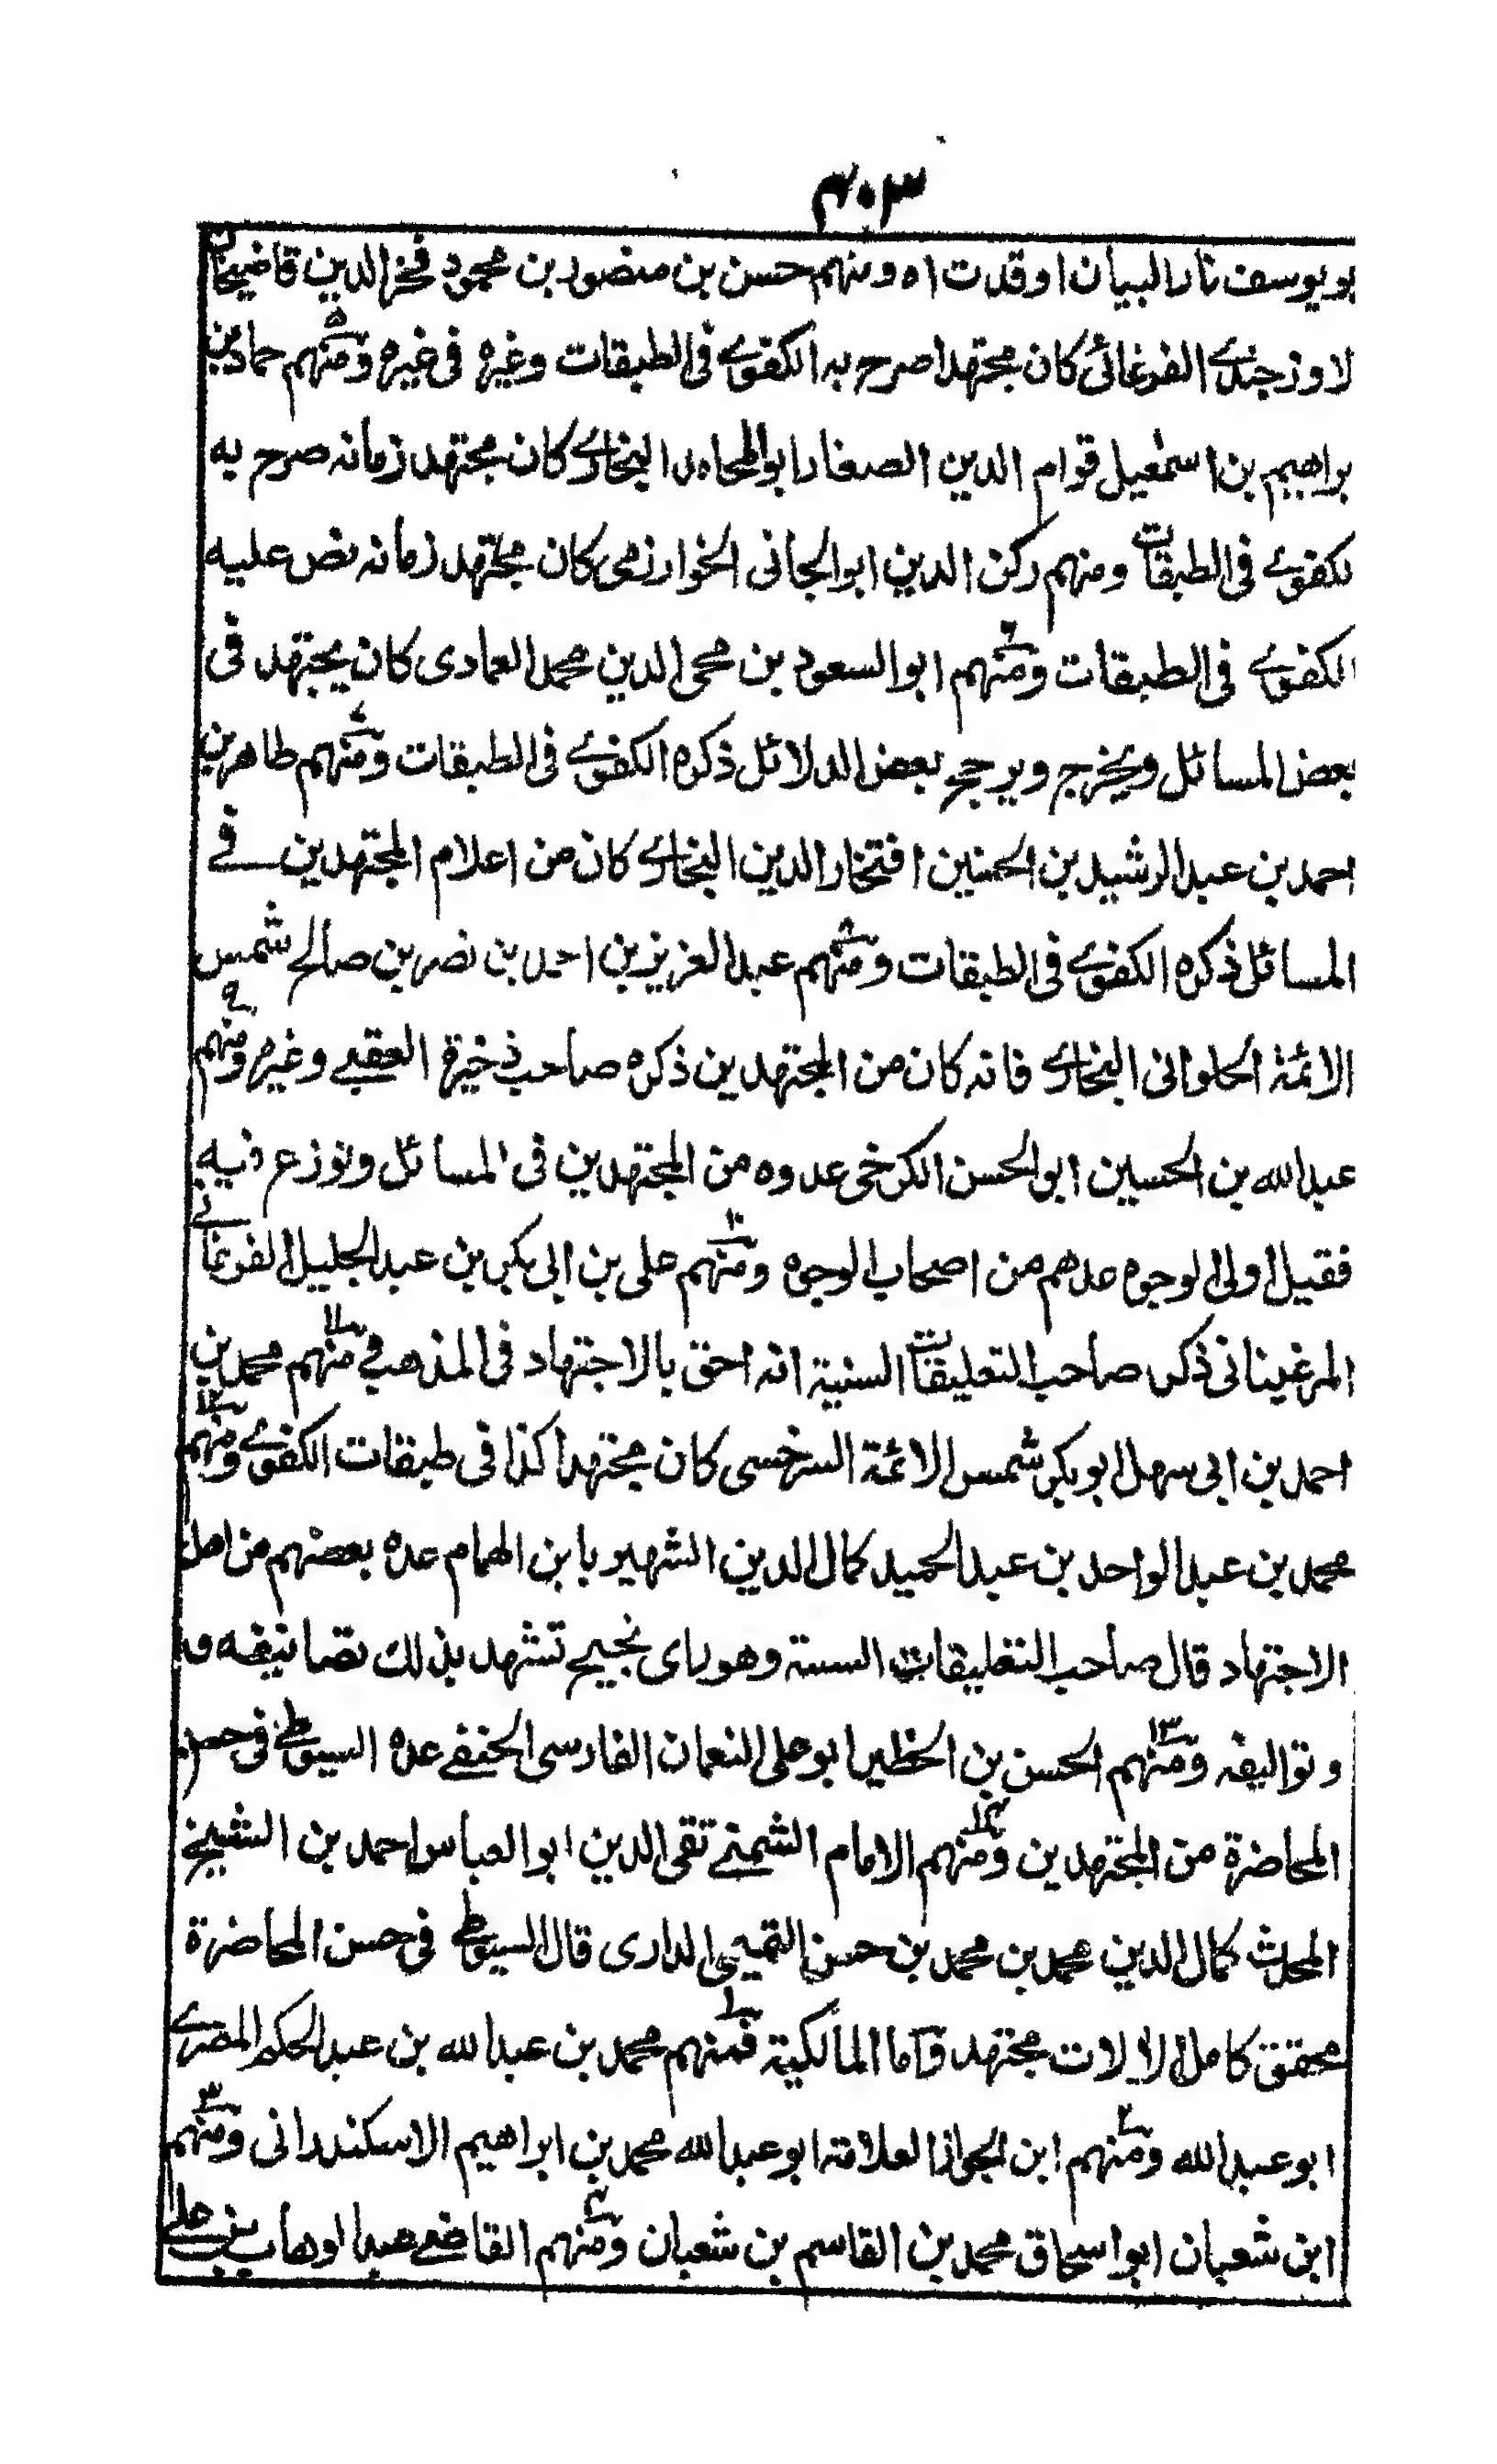 ٤٠٣
بو يوسف نار البيان اوقدت اه ومنهم حسن بن منصور بن محمود فخر الدين قاضيخان
لاوزجندي الفرغانى كان مجتهدا صرح به الكفوے فى الطبقات وغيره فى غيره ومنهم ٥ حماد بن
براهيم بن اسمعيل قوام الدين الصفار ابو المحامد البخارے كان مجتهد زمانه صرح به
لكفوے فى الطبقات ومنهم ركن الدين ابو الجانى الخوارزمى كان مجتهد زمانه نص عليه
الكفوے فى الطبقات ومنهم ٦ ابو السعود بن محى الدين محمد العمادى كان يجتهد فى
بعض المسائل ويخرج ويرجح بعض الدلائل ذكره الكفوے فى الطبقات ومنهم ٧ طاهر بن
احمد بن عبد الرشيد بن الحسنين افتخار الدين البخارے كان من اعلام المجتهدين فے
المسائل ذكره الكفوے فى الطبقات ومنهم ٨ عبد العزيز بن احمد بن نصر بن صالح شمس
الائمة الحلوانى البخارے فانه كان من المجتهدين ذكره صاحب ذخيرة العقبے وغيره ومنهم ٩
عبد الله بن الحسين ابو الحسن الكرخى عدوه من المجتهدين فى المسائل ونوزع فيه
فقيل اولى الوجوه عدهم من اصحاب الوجوه ومنهم ١٠ على بن ابى بكر بن عبد الجليل الفرغانے
المرغينانى ذكر صاحب التعليقات السنية انه احق بالاجتهاد فى المذهب ومنهم ١١ محمد بن
احمد بن ابى سهل ابو بكر شمس الائمة السرخسى كان مجتهدا كذا فى طبقات الكفوے ومنهم ١٢
محمد بن عبد الواحد بن عبد الحميد كمال الدين الشهير بابن الهمام عده بعضهم من اهل
الاجتهاد قال صاحب التعليقات السنية وهو راى نجيح تشهد بذلك تصانيفه
وتواليفه ومنهم ١٣ الحسن بن الخطير ابو على النعمان الفارسى الحنفے عده السيوطے فى حسن
المحاضرة من المجتهدين ومنهم ١٤ الامام الشمنے تقى الدين ابو العباس احمد بن الشيخ
المحدث كمال الدين محمد بن محمد بن حسن التميمى الدارى قال السيوطے فى حسن المحاضرة
محقق كامل الالات مجتهد واما المالكية فمنهم ١ محمد بن عبد الله بن عبد الحكم المصرے
ابو عبد الله ومنهم ٢ ابن المواز العلامة ابو عبد الله محمد بن ابراهيم الاسكندرانى ومنهم ٣
ابن شعبان ابو اسحاق محمد بن القاسم بن شعبان ومنهم ٤ القاضے عبد الوهاب بن علے